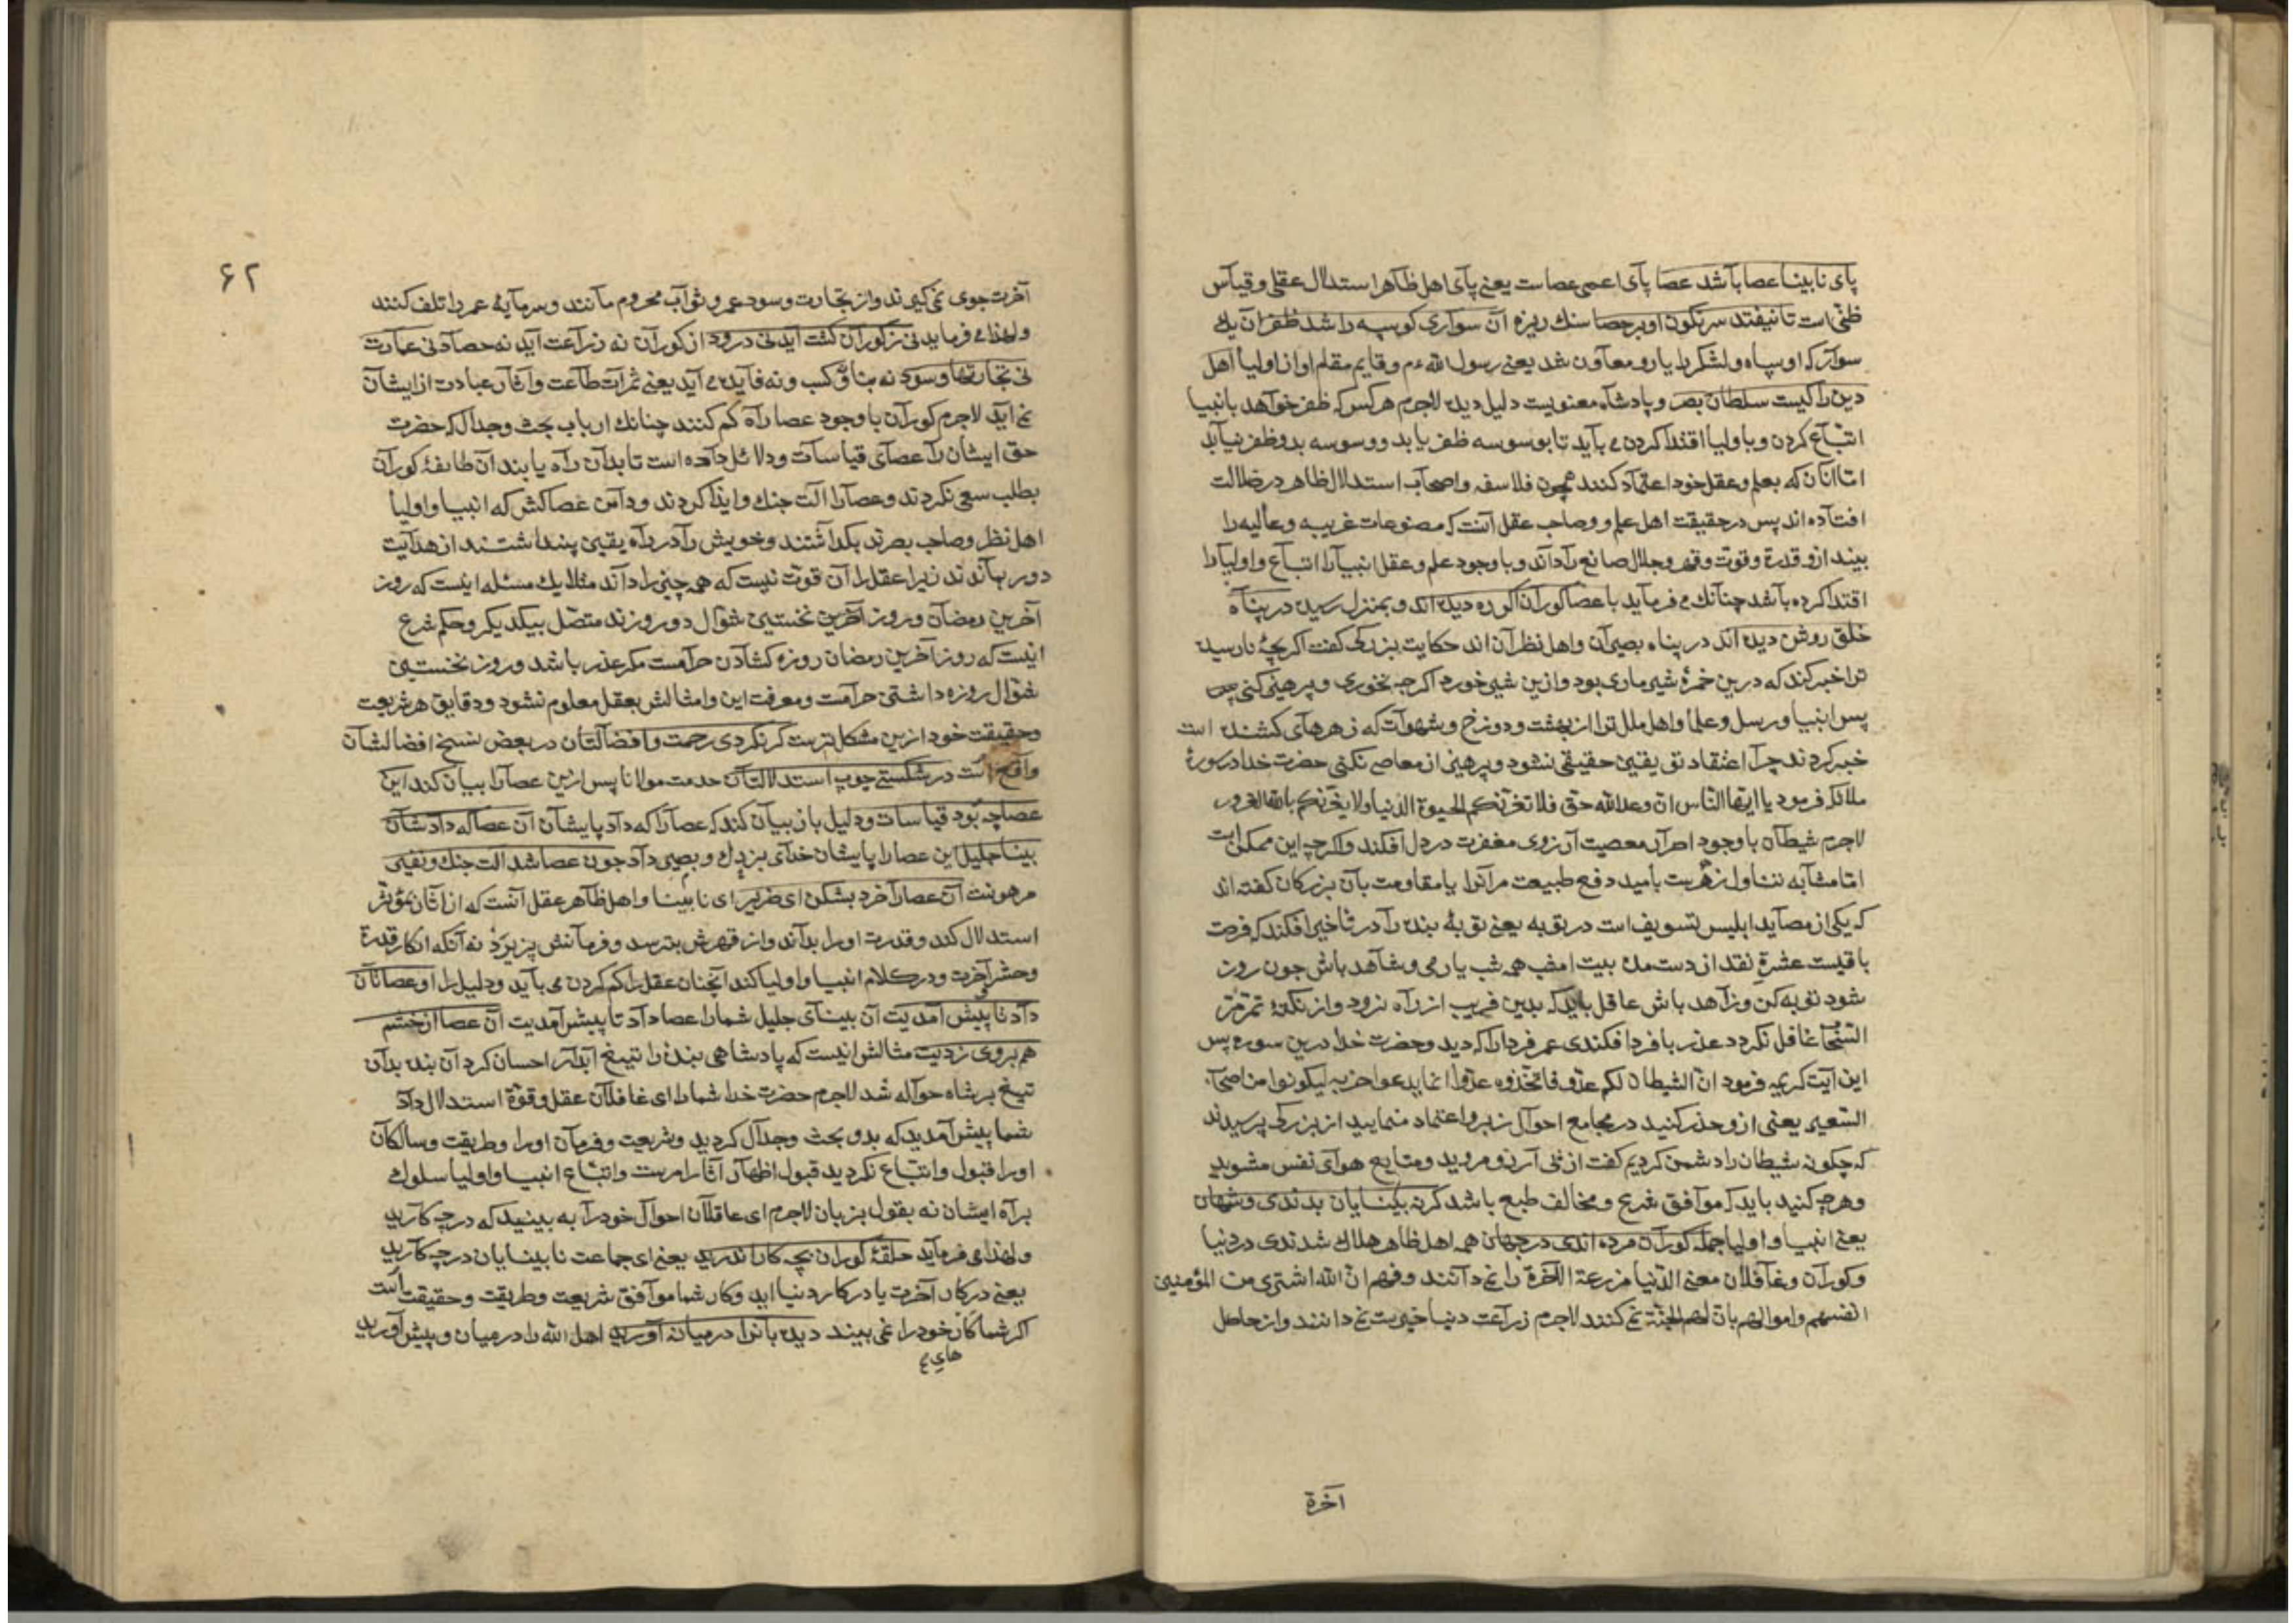 پای نابینا عصا باشد عصا پای اعمی عصاست یعنی پای اهل ظاهر استدلال عقلی و قیاس
ظنی است تا نیفتد سرنکون او بر حصا سنك ریزه آن سواری کو سپه را شد ظفر آن یك
سوار که او سپاه و لشکر را یار و معاون شد یعنی رسول الله ءم و قایم مقام او از اولیا اهل
دین را کیست سلطان بصر و پادشاه معنویست دلیل دین لاجرم هر کس که ظفر خواهد بانبیا
اتباع کردن و باولیا اقتدا کردن می باید تا بوسوسه ظفر یابد و وسوسه بدو ظفر نیابد
اما آنان که بعلم و عقل خود اعتماد کنند همچون فلاسفه و اصحاب استدلال ظاهر در ضلالت
افتاده اند پس در حقیقت اهل علم و صاحب عقل آنست که مصنوعات غریبه و عالیه را
بیند ازو قدرة و قوت و قهر و جلال صانع را داند و با وجود علم و عقل انبیا را اتباع و اولیا را
اقتدا کرده باشد چنانك می فرماید با عصا کوران اکر ره دیده اند و بمنزل رسیده در پناه
خلق روشن دیده اند در پناه بصیران و اهل نظران اند حکایت بزرکی کفت اکر بچۀ نارسیده
ترا خبر کند که درین خمرۀ شیر ماری بود و ازین شیر خورد اکرچه نخوری و پرهیز کنی
پس انبیا و رسل و علما و اهل ملل ترا از بهشت و دوزخ و شهوات که زهرهای کشنده است
خبر کردند چرا اعتقاد تو یقین حقیقی نشود و پرهیز از معاصی نکنی حضرت خدا در سورۀ
ملائکه فرمود یا ایها الناس ان وعد الله حق فلا تغرنکم الحیوة الدنیا ولا یغرنکم بالله الغرور
لاجرم شیطان با وجود اصرار معصیت آرزوی مغفرت در دل افکند و اکرچه این ممکن است
اما مشابه تناول زهریست بامید دفع طبیعت مر آنرا یا مقاومت بآن بزرکان کفته اند
که یکی از مصاید ابلیس تسویف است در توبه یعنی توبۀ بنده را در تاخیر افکند که فرصت
باقیست عشرة نقد از دست مده بیت امشب همه شب یار می و شاهد باش چون روز
شود توبه کن و زاهد باش عاقل باید که بدین فریب از راه نرود و از نکتۀ تمر مر
السحاب غافل نکردد عذر با فردا فکندی عمر فردا را که دید و حضرت خدا درین سوره پس
این آیت کریمه فرمود ان الشیطان لکم عدو فاتخذوه عدوا انما یدعوا حزبه لیکونوا من اصحاب
السعیر یعنی ازو حذر کنید در مجامع احوال زبرو اعتماد منمایید از بزرکی پرسیدند
که چکونه شیطان را دشمن کردیم کفت از پی آرزو مروید و متابع هوای نفس مشوید
و هرچه کنید باید که موافق شرع و مخالف طبع باشد کر نه بینایان بدندی و شهان
یعنی انبیا و اولیا جمله کوران مرده اندی در جهان همه اهل ظاهر هلاك شدندی در دنیا
و کوران و غافلان معنی الدنیا مزرعة الآخرة را نمی دانند و فهم ان الله اشتری من المؤمنین
انفسهم و اموالهم بان لهم الجنة نمی کنند لاجرم زراعت دنیا خیریت نمی دانند و از حاصل
آخرة
۶۲
آخرت جوی نمی کیرند و از تجارت و سود عمر و ثواب محروم مانند و سرمایۀ عمر را تلف کنند
و لهذا می فرماید نی ز کوران کشت آید نی درود از کوران نه زراعت آید نه حصاد نی عمارت
نی تجارتها و سود نه بنا و کسب و نه فایده می آید یعنی ثمرات طاعت و آثار عبادت از ایشان
نمی آید لاجرم کوران با وجود عصا راه کم کنند چنانك ارباب بحث و جدال که حضرت
حق ایشان را عصای قیاسات و دلائل داده است تا بدان راه یابند آن طایفۀ کوران
بطلب سعی نکردند و عصا را الت جنك و ایذا کردند و دامن عصاکش که انبیا و اولیا
اهل نظر و صاحب بصرند بکذاشتند و خویش را در راه یقین پنداشتند از هدایت
دور بماندند زیرا عقل را آن قوت نیست که همه چیز را داند مثلا یك مسئله اینست که روز
آخرین رمضان و روز نخستین شوال دو روزند متصل بیکدیکر و حکم شرع
اینست که روز آخرین رمضان روزه کشادن حرامست مکر عذر باشد و روز نخستین
شوال روزه داشتن حرامست و معرفت این و امثالش بعقل معلوم نشود و دقایق هر شریعت
و حقیقت خود ازین مشکل ترست کر نکردی رحمت و افضالتان در بعض نسخ افضالشان
واقع است در شکستی چوب استدلالتان خدمت مولانا پس ازین عصا را بیان کند این
عصا چه بود قیاسات و دلیل باز بیان کند که عصا را که داد بایشان آن عصا که دادشان
بینا جلیل این عصا را بایشان خدای بزرك و بصیر داد چون عصا شد الت جنك و نفیر
مرهونت آن عصا را خرد بشکن ای ضریر ای نابینا و اهل ظاهر عقل آنست که از آثار بمؤثر
استدلال کند و قدرت او را بداند و از قهرش بترسد و فرمانش پزیرد نه آنکه انکار قدرة
و حشر آخرت و در کلام انبیا و اولیا کند آنچنان عقل را کم کردن می باید و دلیل را او عصاتان
داد تا پیش آمدیت آن بینای جلیل شما را عصا داد تا پیش آمدیت آن عصا از خشم
هم بروی زدیت مثالش اینست که پادشاهی بنده را تیغ آبدار احسان کرد آن بنده بدان
تیغ بر شاه حواله شد لاجرم حضرت خدا شما را ای غافلان عقل و قوة استدلال داد
شما پیش آمدید که بدو بحث و جدال کردید و شریعت و فرمان او را و طریقت و سالکان
او را قبول و اتباع نکردید قبول اظهار آثار امرست و اتباع انبیا و اولیا سلوك
براه ایشان نه بقول بزبان لاجرم ای عاقلان احوال خود را به بینید که در چه کارید
و لهذا می فرماید حلقۀ کوران بچه کار اندرید یعنی ای جماعت نابینایان در چه کارید
یعنی در کار آخرت یا در کار دنیا اید و کار شما موافق شریعت و طریقت و حقیقت است
اکر شما کار خود را نمی بیند دیده بانرا در میانه آورید اهل الله را در میان و پیش آورید